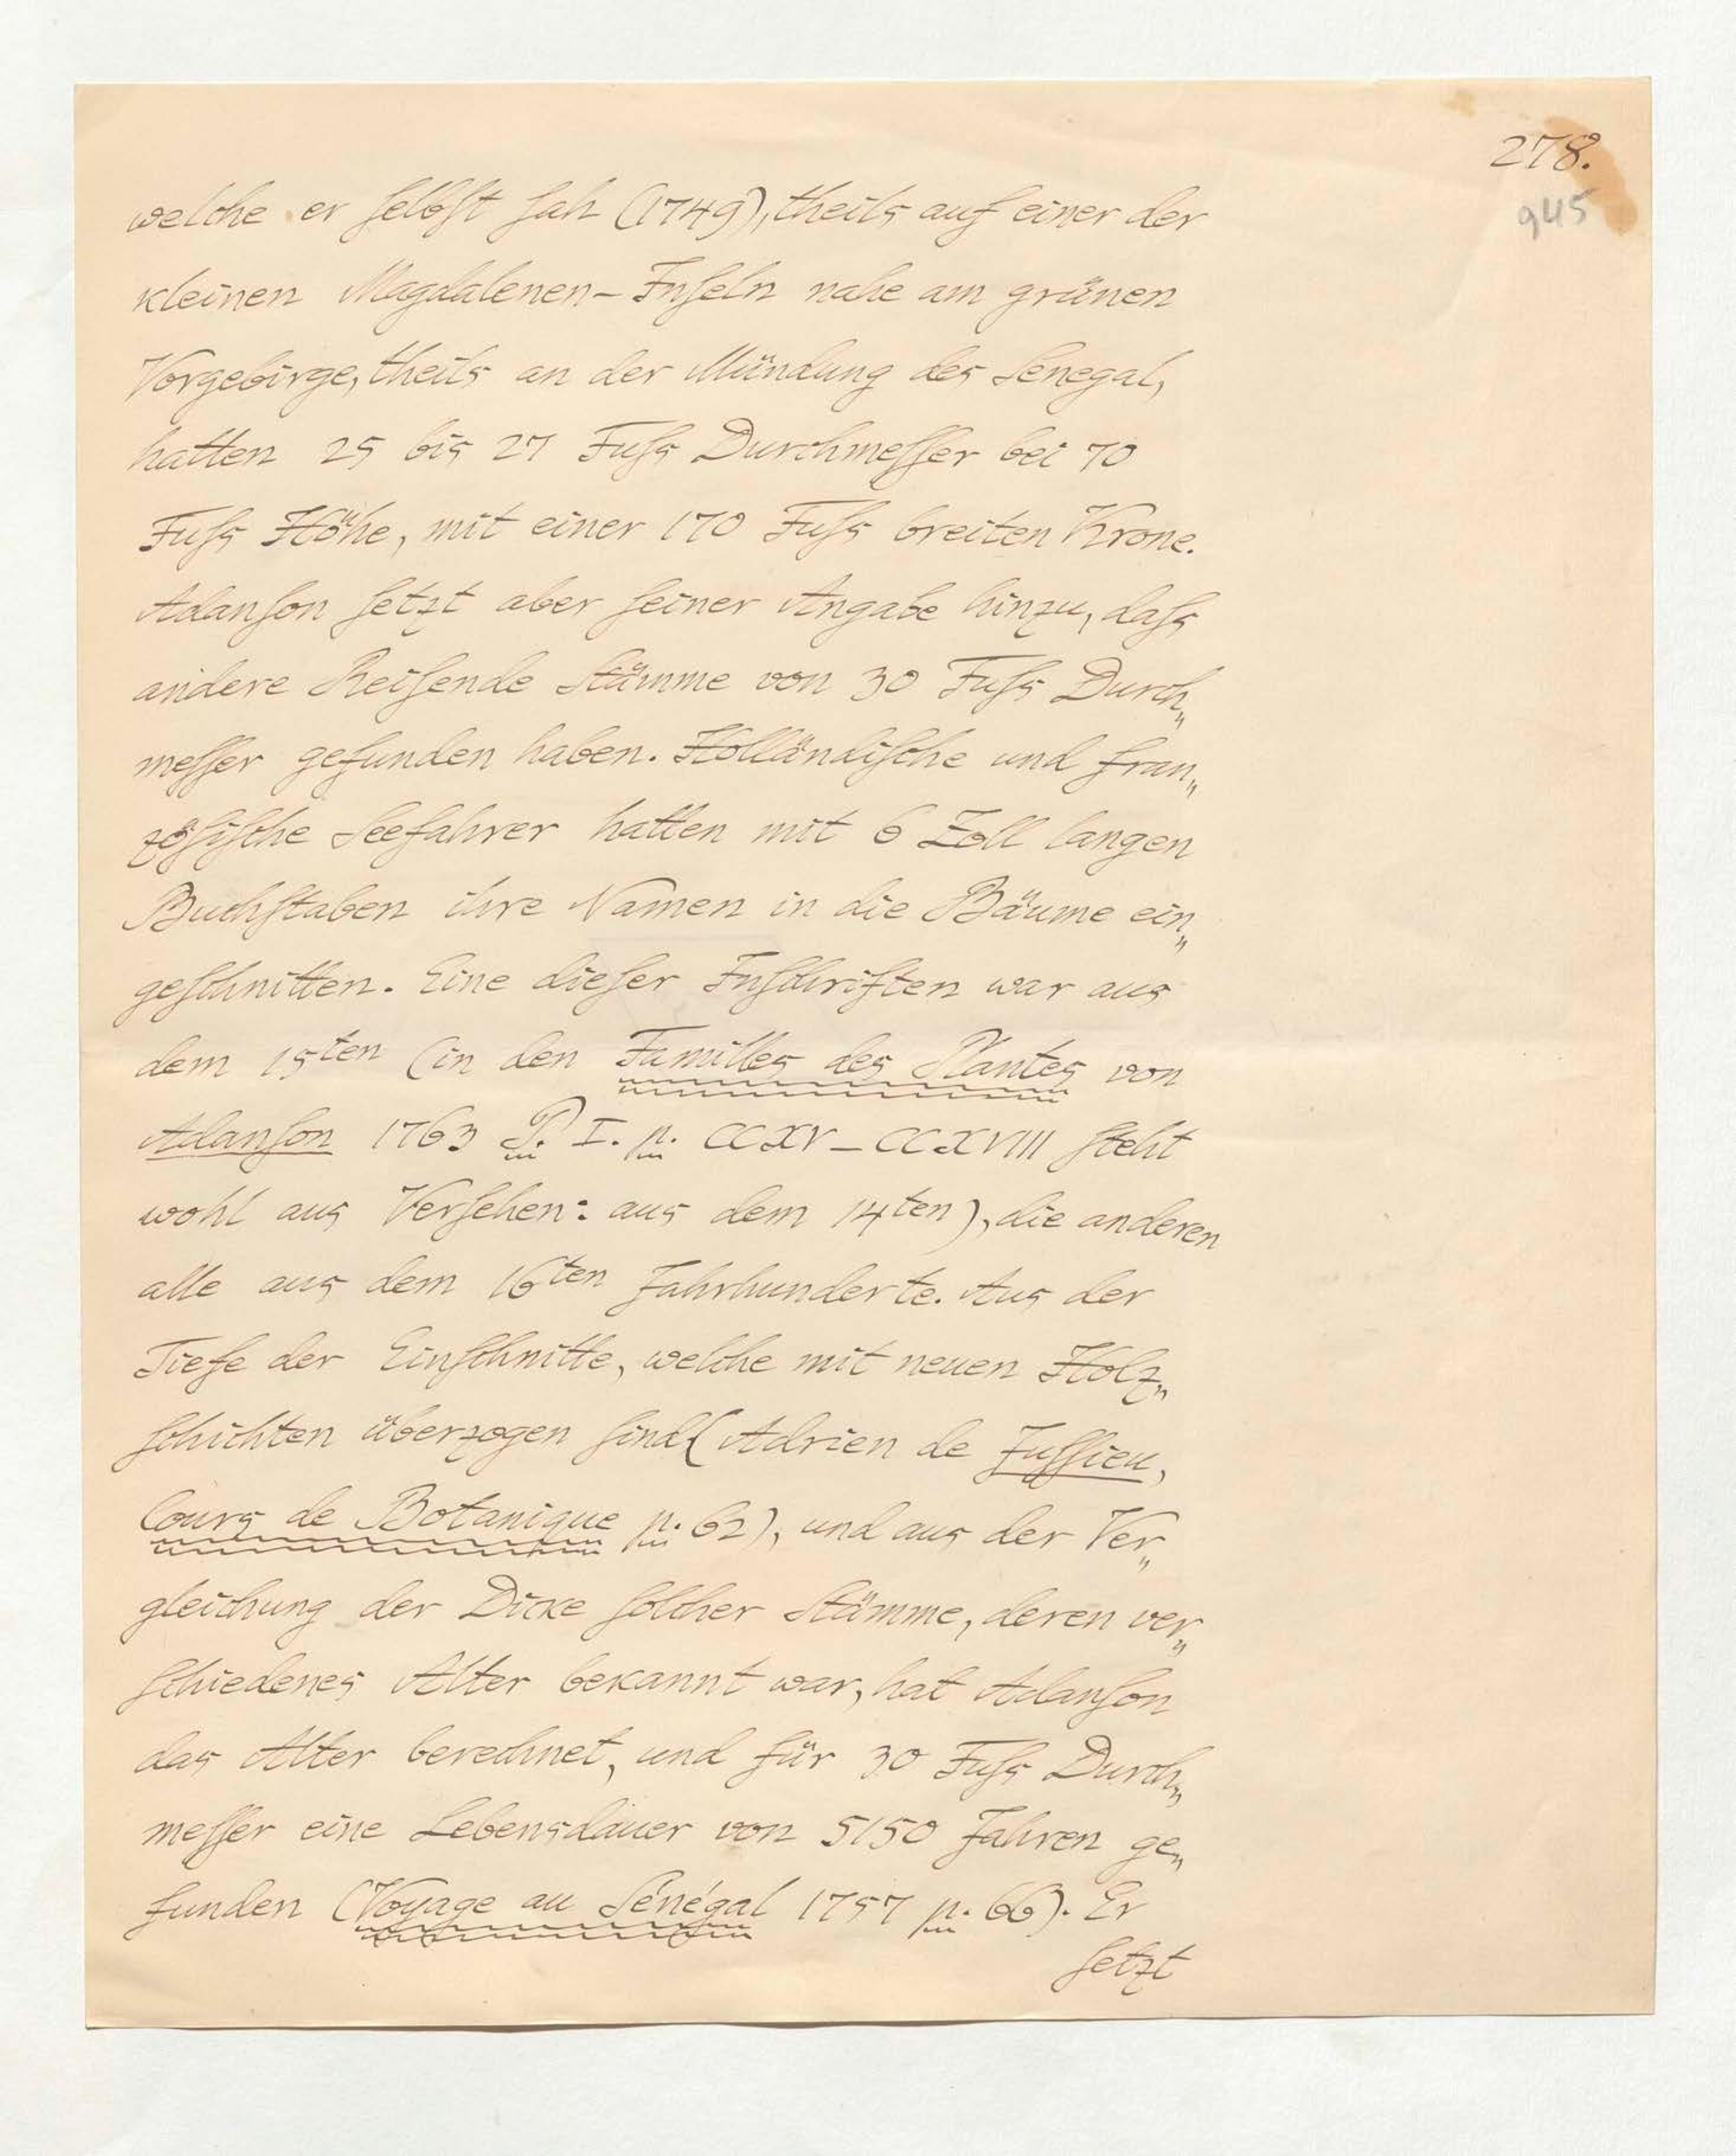 278.
945
welche er ſelbſt ſah (1749), theils auf einer der
kleinen Magdalenen-Inſeln nahe am grünen
Vorgebirge, theils an der Mündung des Senegal,
hatten 25 bis 27 Fuſs Durchmeſſer bei 70
Fuſs Höhe, mit einer 170 Fuſs breiten Krone.
Adanſon ſetzt aber ſeiner Angabe hinzu, daſs
andere Reiſende Stämme von 30 Fuſs Durch„
meſſer gefunden haben. Holländiſche und fran„
zöſiſche Seefahrer hatten mit 6 Zoll langen
Buchſtaben ihre Namen in die Bäume ein„
geſchnitten. Eine dieſer Inſchriften war aus
dem 15ten (in den Familles des Plantes von
Adanſon 1763 P. I. p. CCXV–CCXVIII ſteht
wohl aus Verſehen: aus dem 14ten), die anderen
alle aus dem 16ten Jahrhunderte. Aus der
Tiefe der Einſchnitte, welche mit neuen Holz„
ſchichten überzogen ſind (Adrien de Juſſieu,
Cours de Botanique p. 62), und aus der Ver„
gleichung der Dicke ſolcher Stämme, deren ver„
ſchiedenes Alter bekannt war, hat Adanſon
das Alter berechnet, und für 30 Fuſs Durch„
meſſer eine Lebensdauer von 5150 Jahren ge„
funden (Voyage au Sénégal 1757 p. 66). Er
ſetzt